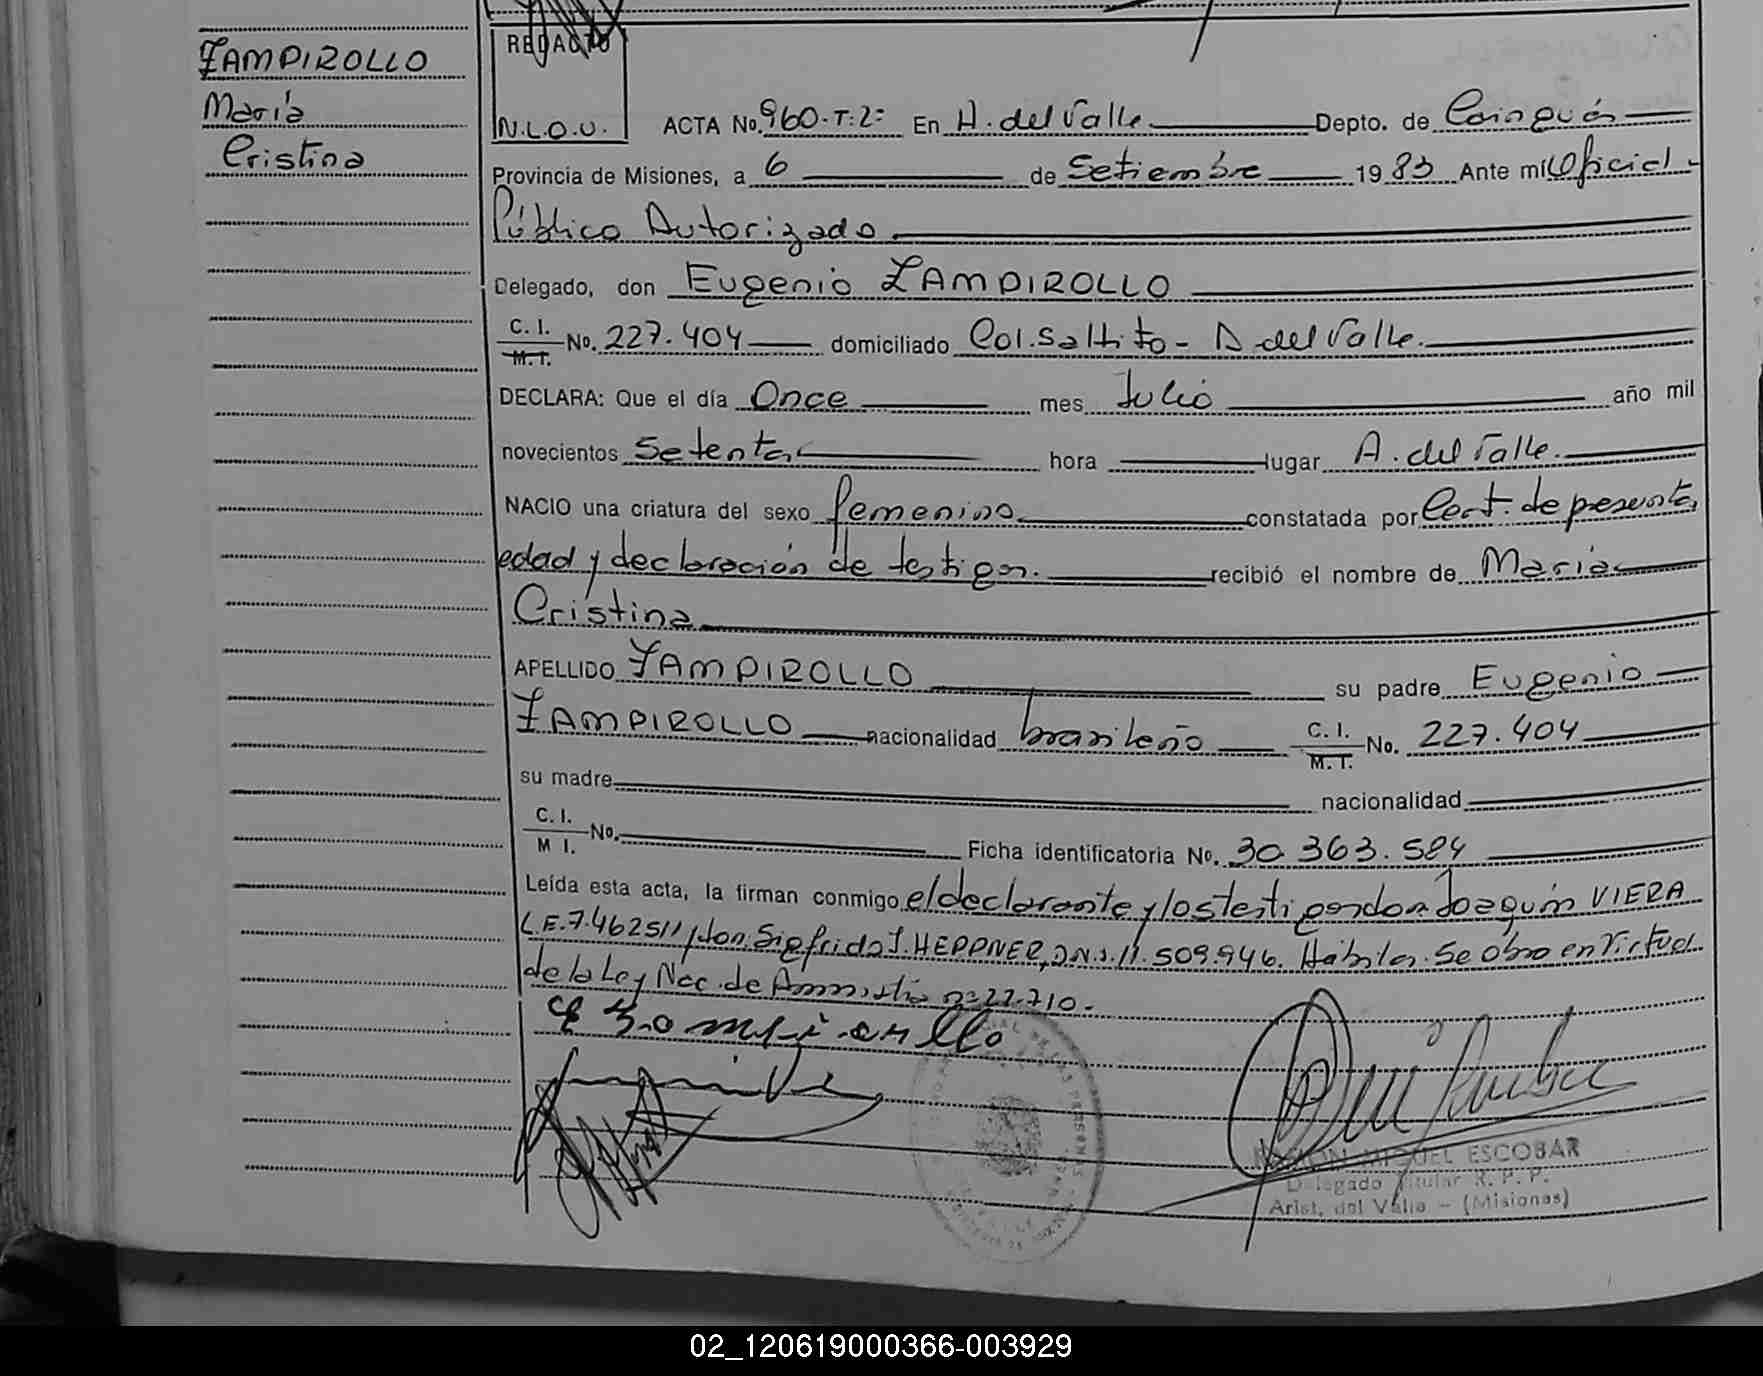 ZAMPIROLLO
María
Cristina
REDACTO
N.L.O.U.
ACTA No. 960-T:2= En A. del Valle Depto. de Cainguás
Provincia de Misiones, a 6 de Setiembre 1983 Ante mí Oficial
Público Autorizado
Delegado, don Eugenio ZAMPIROLLO
C. I. M. I. No. 227.404 domiciliado Col. Saltito - A del Valle.
DECLARA: Que el día Once mes Julio año mil
novecientos Setenta hora lugar A. del Valle.
NACIO una criatura del sexo femenino constatada por Cert. de presunta
edad y declaración de testigos. recibió el nombre de María
Cristina
APELLIDO ZAMPIROLLO su padre Eugenio
ZAMPIROLLO nacionalidad brasileño C. I. M. I. No. 227.404
su madre nacionalidad
C. I. M I. No. Ficha identificatoria No. 30 363.584
Leída esta acta, la firman conmigo el declarante y los testigos don Joaquín VIERA
L.E. 7.462511 y don Sigfrido J. HEPPNER, D.N.I. 11.509.946. Hábiles. Se obro en Virtud
de la Ley Nac. de Amnistía nº 22.710.
MIGUEL ESCOBAR
Delegado Titular R. P. P.
Arist. del Valle - (Misiones)
02_120619000366-003929